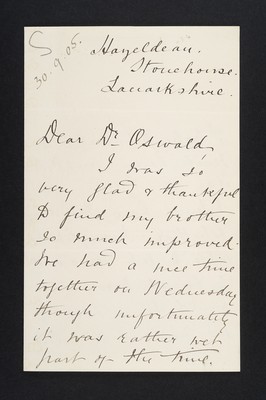 S
30.9.05.
Hazeldean.
Stonehouse.
Lanarkshire.
Dear Dr Oswald,
I was so
very glad & thankful
to find my brother
so much improved.
We had a nice time
together on Wednesday
though unfortunately
it was rather wet
part of the time.